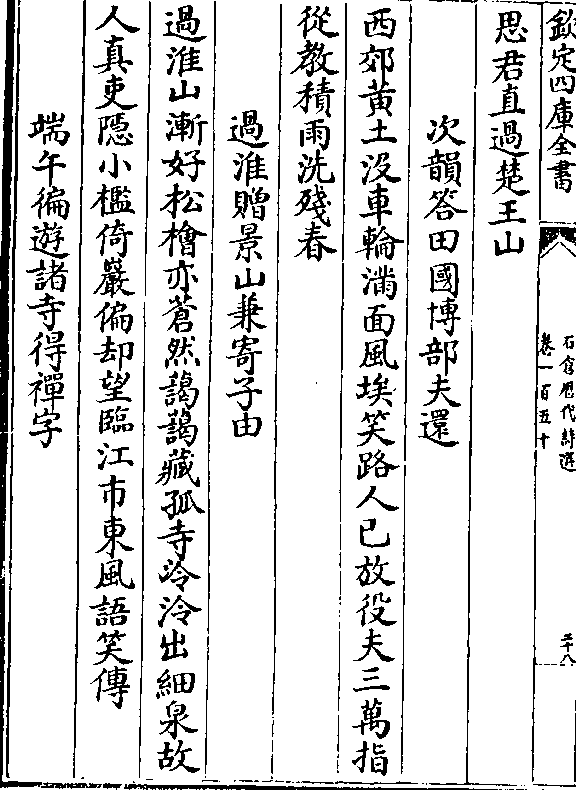 欽定四庫全書
石倉歷代詩選
卷一百五十
二十八
思君直過楚王山
次韻答田國博部夫還
西郊黄土没車輪滿面風埃笑路人已放役夫三萬指
從教積雨洗殘春
過淮贈景山兼寄子由
過淮山漸好松檜亦蒼然藹藹藏孤寺泠泠出細泉故
人真吏隱小檻倚巖偏却望臨江市東風語笑傳
端午徧遊諸寺得禪字